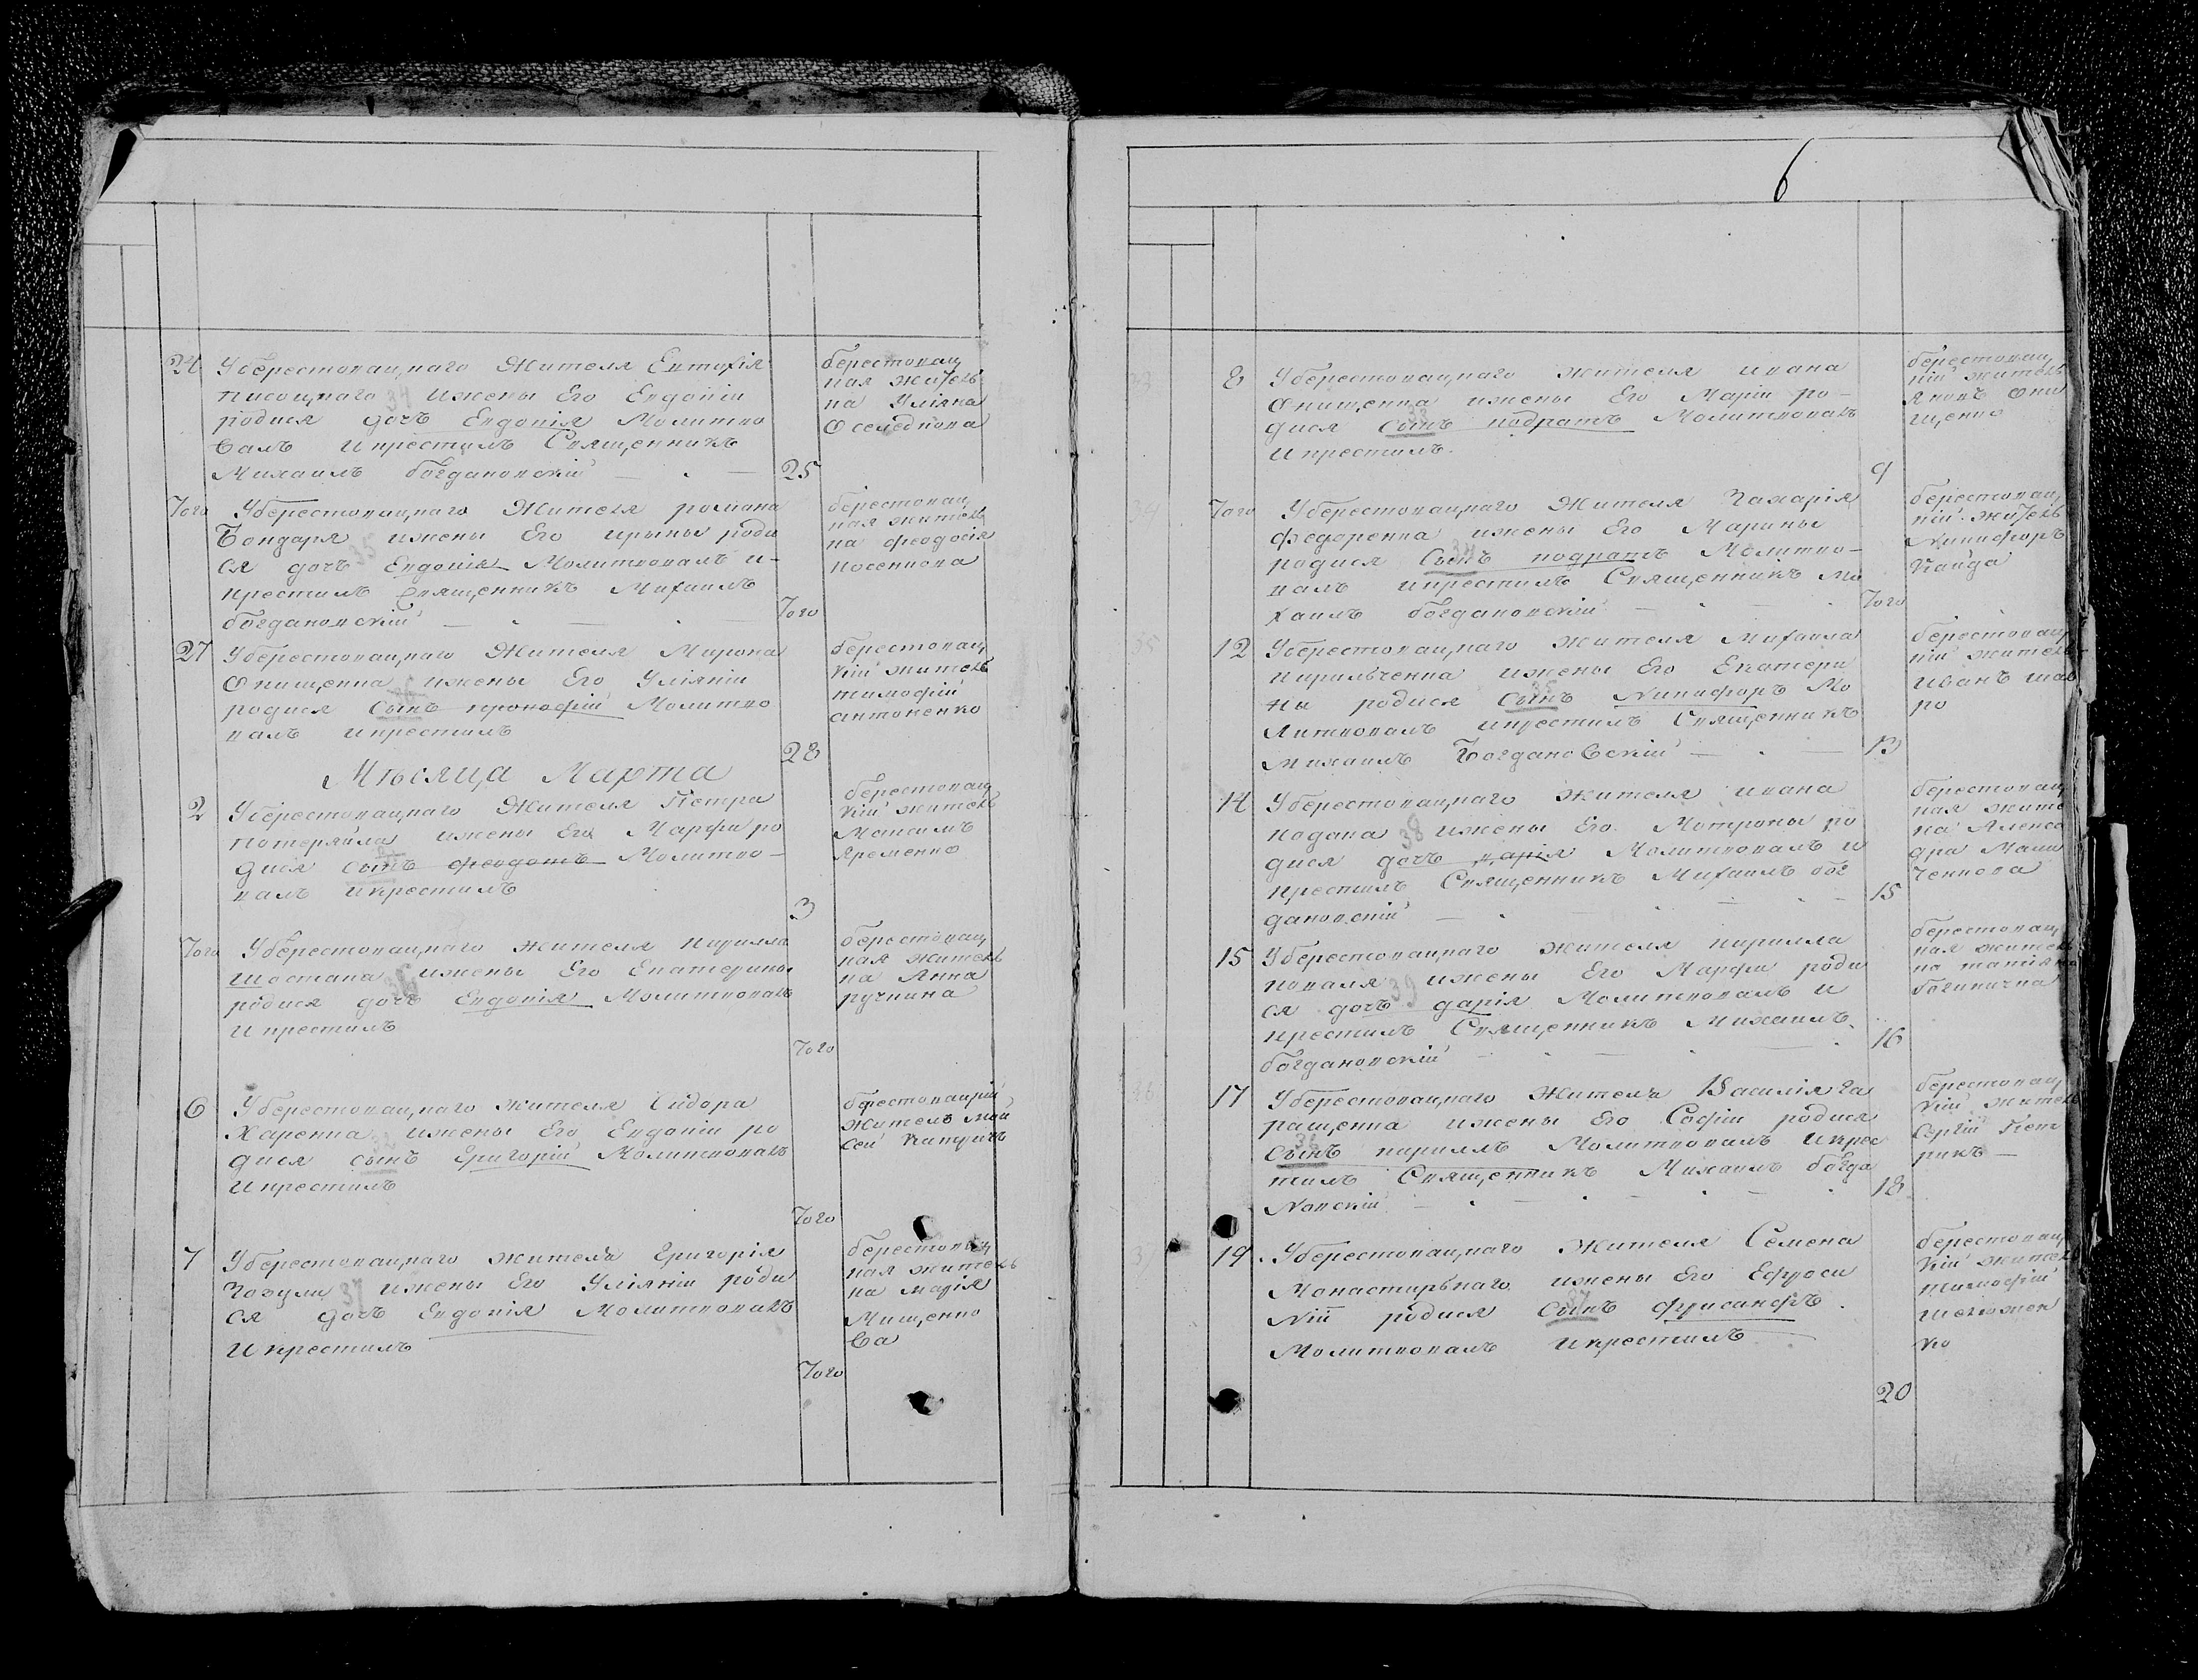 6
24 Уберестовацкаго Жителя Евтихія
писоцкаго Ижены Его Евдокіи
родися дочъ Евдокія Молитво
валъ Икрестилъ Священникъ
Михаилъ богдановскій
25
берестовац
кая житель
ка Уліяна
Оселедкова
Того Уберестовацкаго Жителя романа
Бондаря ижены Его ирыны роди
ся дочъ Евдокія Молитвовалъ и-
крестилъ Священникъ Михаилъ
богдановскій
Того
берестовац
кая житель
ка феодосія
косенкова
27 Уберестовацкаго Жителя Мирона
Онищенка ижены Его Уліяніи
родися сынъ прокофій Молитво
валъ икрестилъ
28
берестовац
кій житель
тимофій
антоненко
Мѣсяца Марта
2 Уберестовацкаго Жителя Петра
потеряйла ижены Его Марфи ро
дися сынъ феодотъ Молитво-
валъ икрестилъ
3
берестовац
кій житель
Максимъ
Яременко
Того Уберестовацкаго жителя кирилла
шостака ижены Его Екатерины
родися дочъ Евдокія Молитвовалъ
Икрестилъ
Того
берестовац
кая житель
ка Анна
ручкина
6 Уберестовацкаго жителя Сидора
Харенка ижены Его Евдокіи ро
дися сынъ Григорій Молитвовалъ
Икрестилъ
Того
берестовацкій
житель Мой
сей
7 Уберестовацкаго жителя Григорія
ижены Его Уліяніи роди
ся дочъ Евдокія Молитвовалъ
Икрестилъ
Того
берестовац
кая житель
ка марія
Мищенко
ва
8 Уберестовацкаго жителя ивана
Онищенка ижены Его Маріи ро-
дися Сынъ кодратъ Молитвовалъ
Икрестилъ.
9
берестовац
кій житель
Яковъ они
щенко
Того Уберестовацкаго Жителя Захарія
федоренка ижены Его Марины
родися Сынъ кодратъ Молитво-
валъ икрестилъ Священникъ Ми
хаилъ богдановскій
Того
берестовац
кій житель
Никифоръ
Кайда
12 Уберестовацкаго жителя Михаила
кирильченка ижены Его Екатери
ны родися Сынъ Никифоръ Мо
литвовалъ икрестилъ Священникъ
Михаилъ Богдановскій
13
берестовац
кій житель
Иванъ шап
ро
14 Уберестовацкаго жителя ивана
ижены Его Мотроны ро
дися дочъ дарія Молитвовалъ и
крестилъ Священникъ Михаилъ бог
дановскій
15
берестовац
кая жите
ка Алекса
дра Мали
ченкова
15 Уберестовацкаго жителя кирилла
коваля ижены Его Марфи роди
ся дочъ дарія Молитвовалъ и
крестилъ Священникъ Михаилъ
богдановскій
16
берестовац
кая житель
ка татіяна
17 Уберестовацкаго Жителя Василія га
ращенка ижены Его Софіи родися
Сынъ кириллъ Молитвовалъ Икрес
тилъ Священникъ Михаилъ богда
Новскій
18
берестовац
кій житель
Сергій Пет
рикъ
19 Уберестовацкаго Жителя Семена
Монастырьнаго ижены Его Ефроси
Ніи родися Сынъ фрисанфъ
Молитвовалъ икрестилъ
20
берестовац
кій житель
тимофій
ко